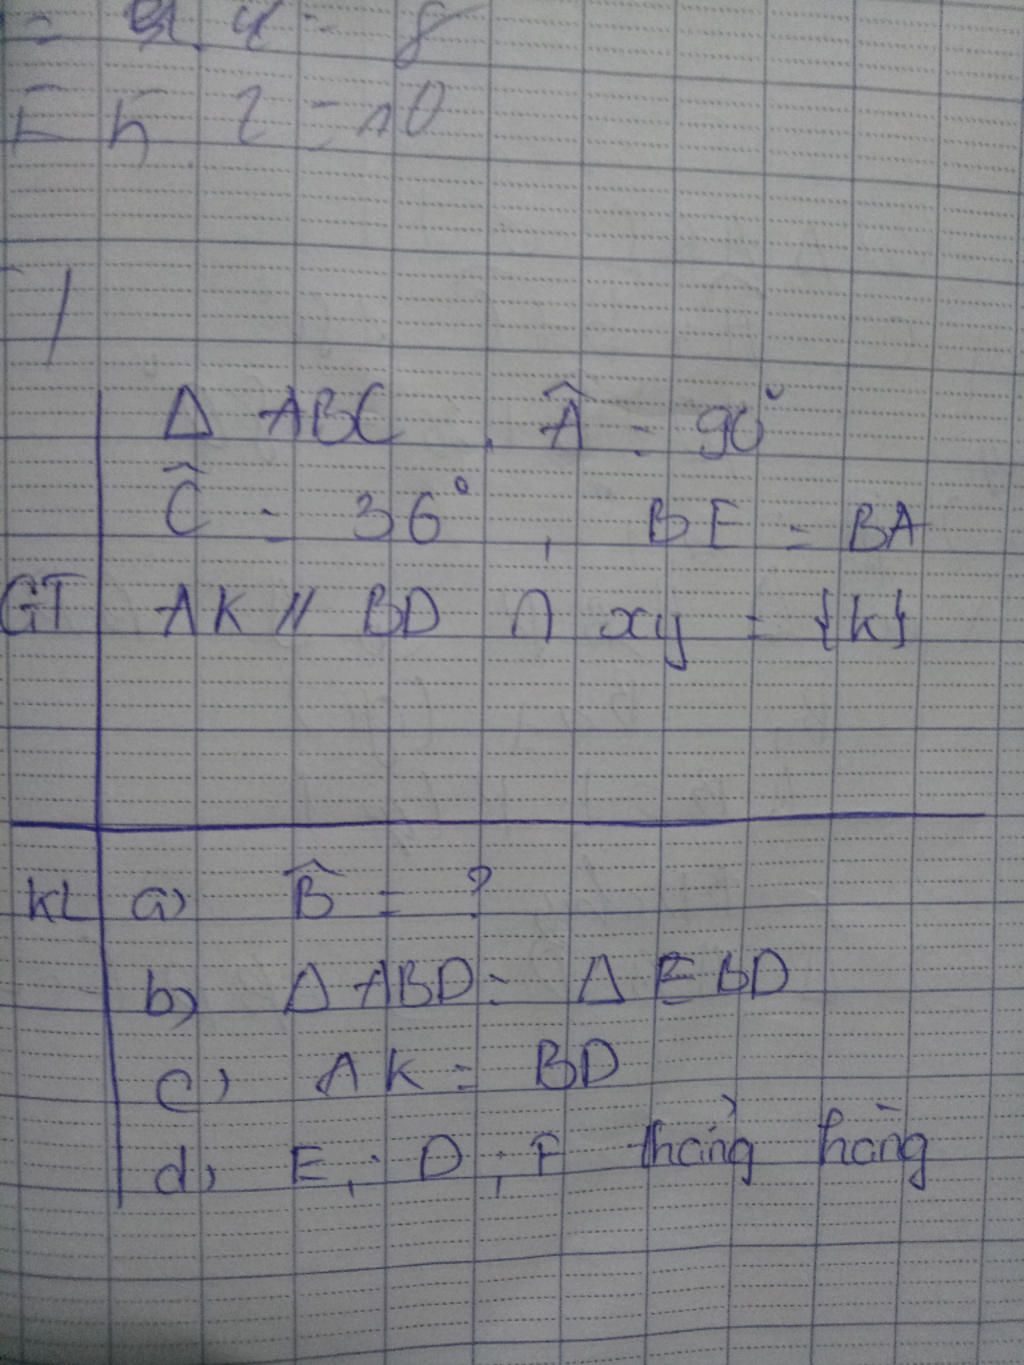 = 8
= 10
Δ ABC , Â = 90°
Ĉ = 36° , BE = BA
GT AK // BD ∩ xy = {k}
KL a) B̂ = ?
b) Δ ABD = Δ EBD
c) AK = BD
d) E, D, F thẳng hàng